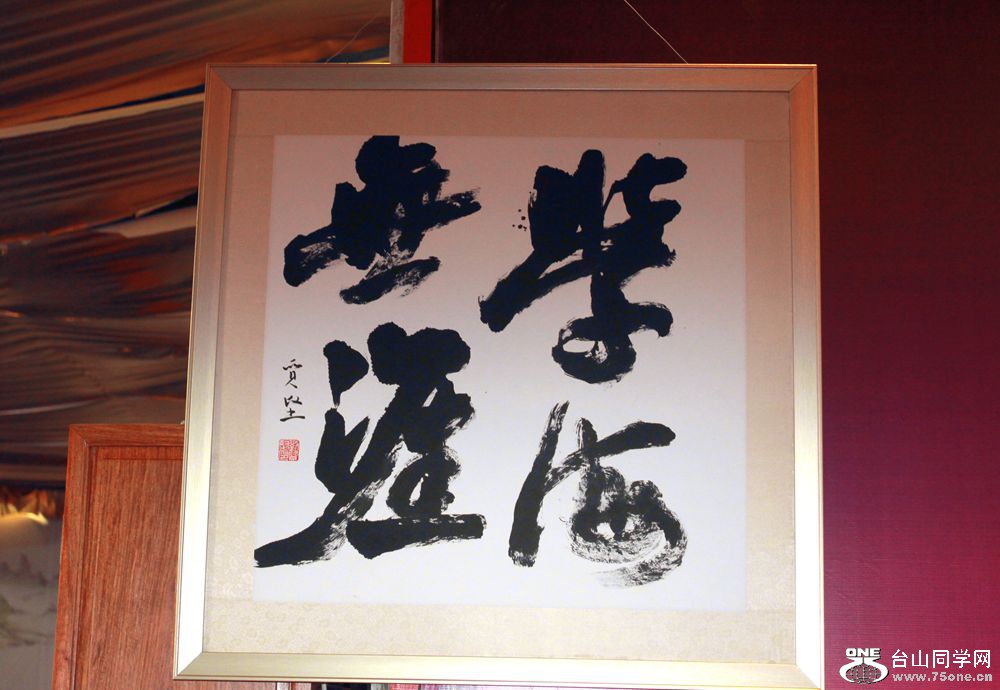 學海
無涯
贾坚
ONE
台山同学网
www.75one.cn